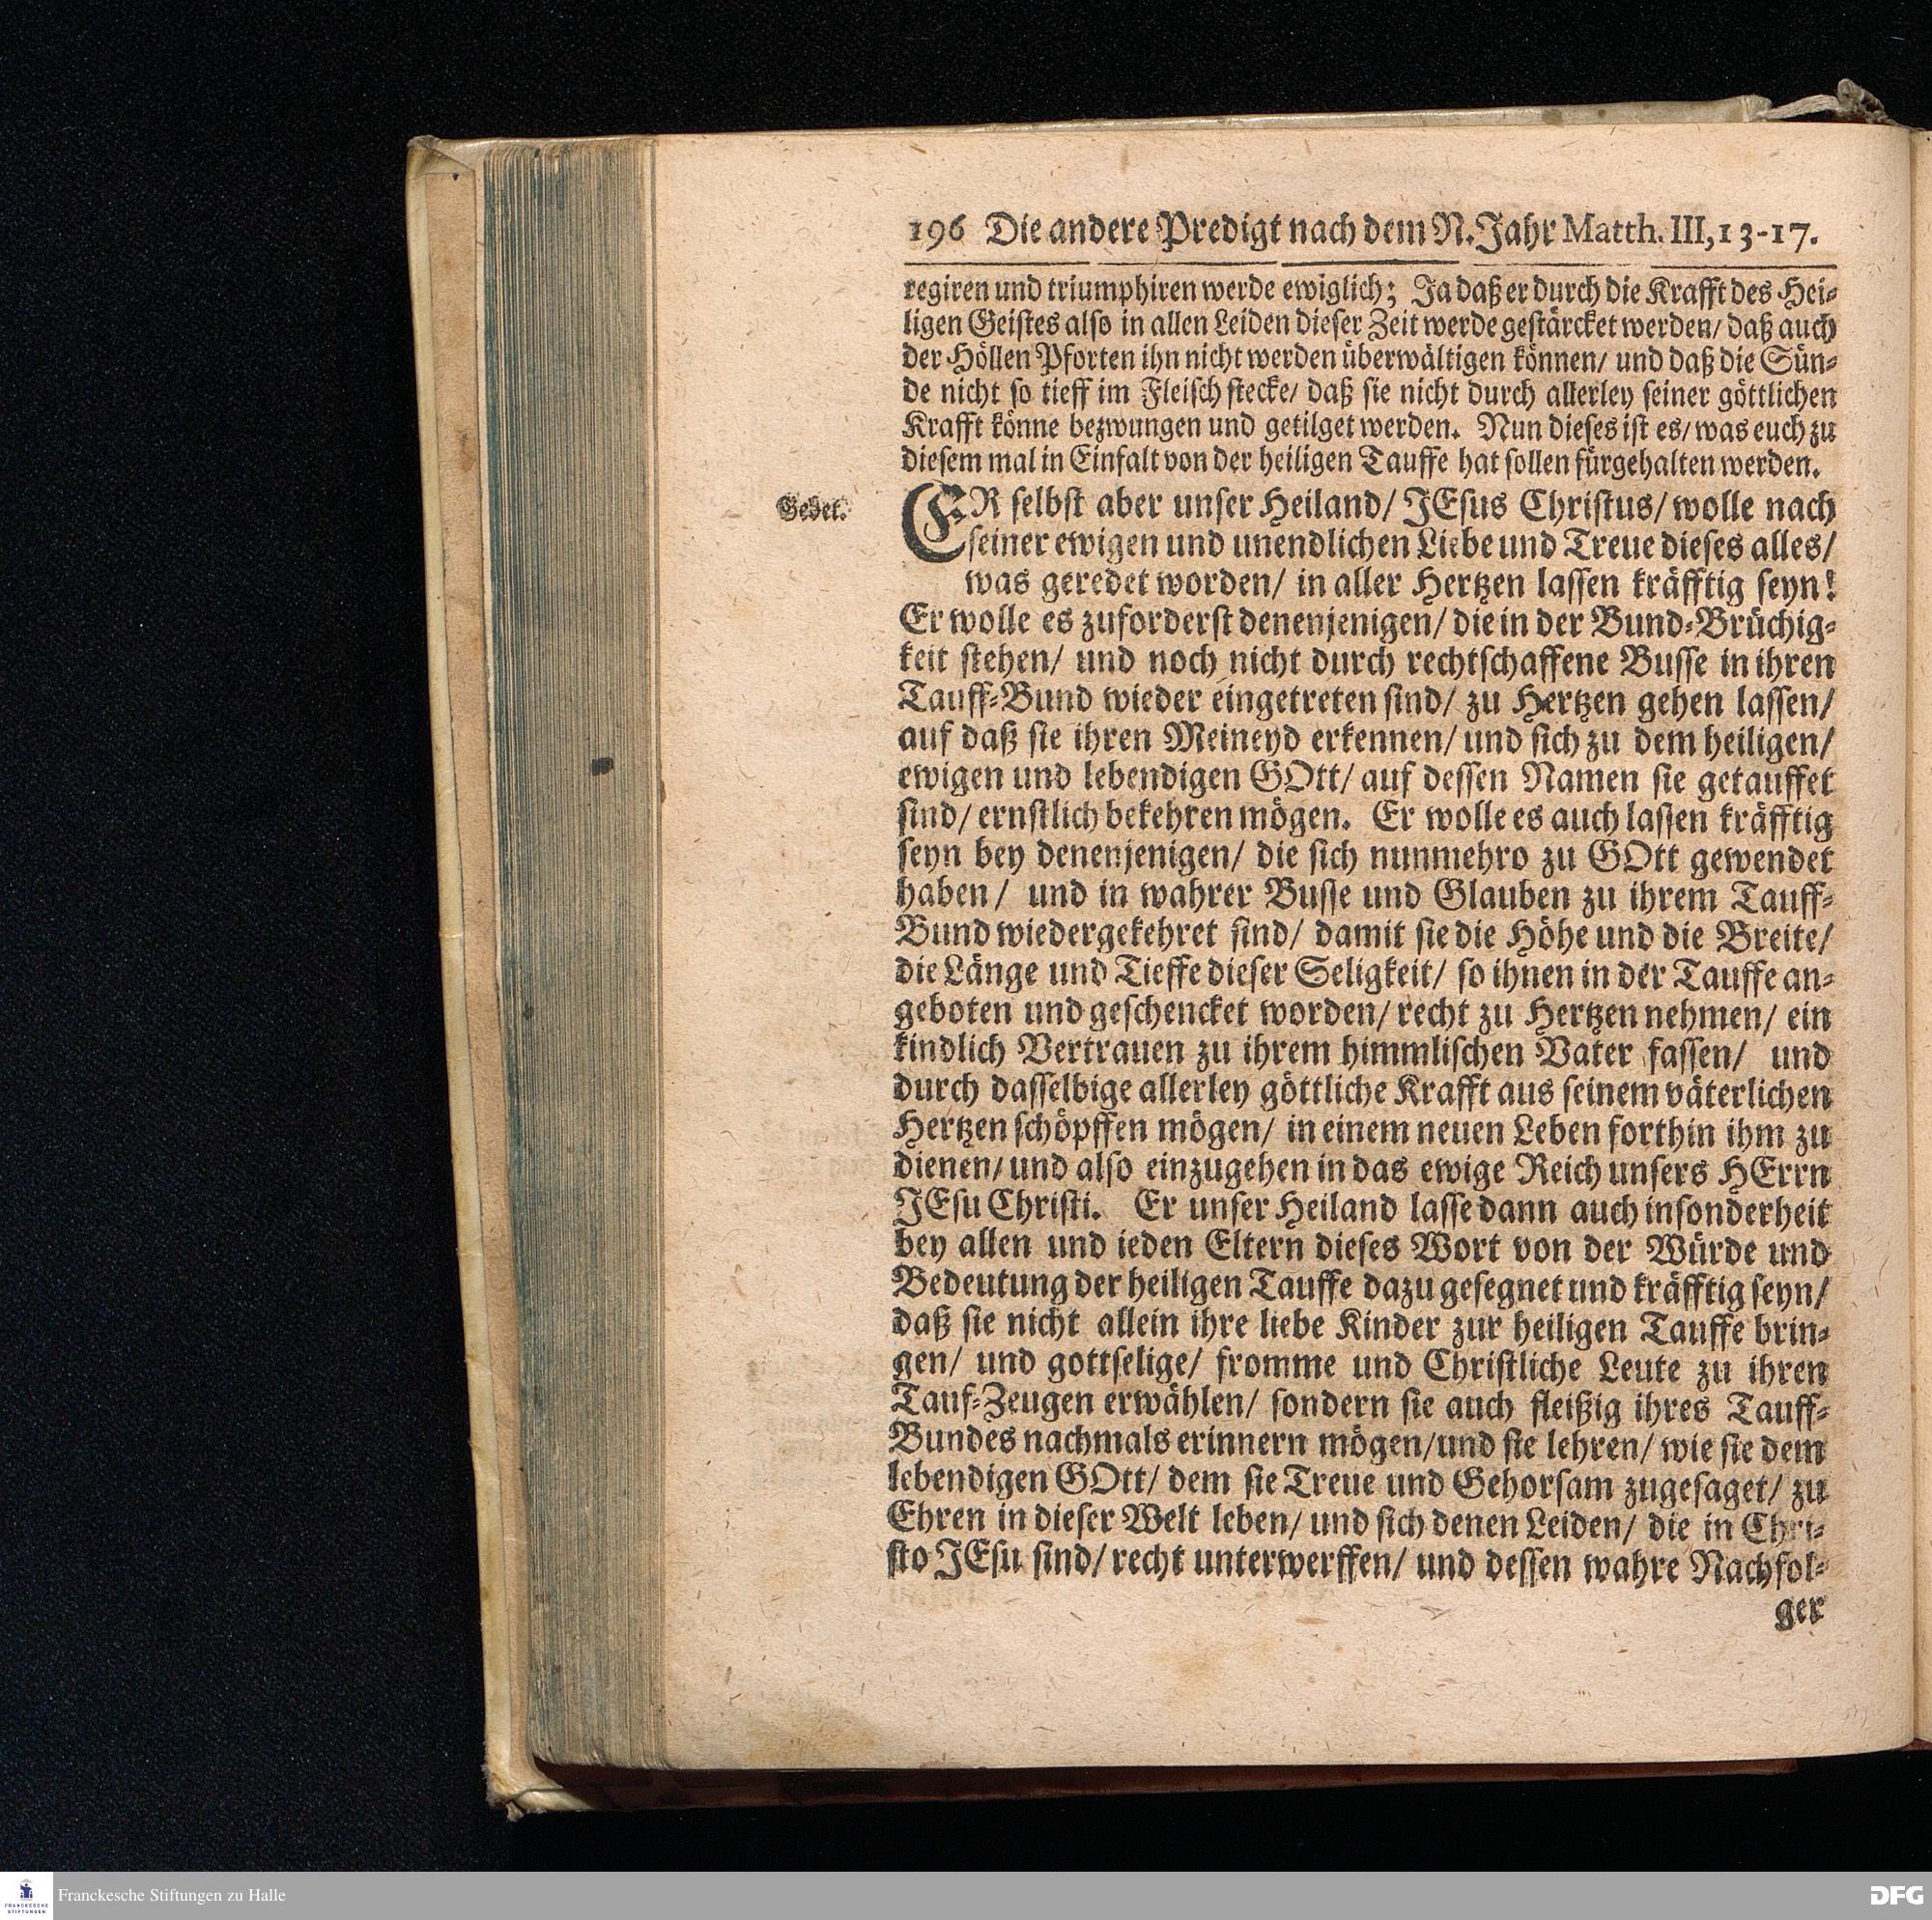 196 Die andere Predigt nach dem N. Jahr Matth. III, 13-17.
regiren und triumphiren werde ewiglich; Ja daß er durch die Krafft des Hei-
ligen Geistes also in allen Leiden dieser Zeit werde gestärcket werden/ daß auch
der Höllen Pforten ihn nicht werden überwältigen können/ und daß die Sün-
de nicht so tieff im Fleisch stecke/ daß sie nicht durch allerley seiner göttlichen
Krafft könne bezwungen und getilget werden. Nun dieses ist es/ was euch zu
diesem mal in Einfalt von der heiligen Tauffe hat sollen fürgehalten werden.
Gebet.
ER selbst aber unser Heiland/ JEsus Christus/ wolle nach
seiner ewigen und unendlichen Liebe und Treue dieses alles/
was geredet worden/ in aller Hertzen lassen kräfftig seyn!
Er wolle es zuforderst denenjenigen/ die in der Bund-Brüchig-
keit stehen/ und noch nicht durch rechtschaffene Busse in ihren
Tauff-Bund wieder eingetreten sind/ zu Hertzen gehen lassen/
auf daß sie ihren Meineyd erkennen/ und sich zu dem heiligen/
ewigen und lebendigen GOtt/ auf dessen Namen sie getauffet
sind/ ernstlich bekehren mögen. Er wolle es auch lassen kräfftig
seyn bey denenjenigen/ die sich nunmehro zu GOtt gewendet
haben/ und in wahrer Busse und Glauben zu ihrem Tauff-
Bund wiedergekehret sind/ damit sie die Höhe und die Breite/
die Länge und Tieffe dieser Seligkeit/ so ihnen in der Tauffe an-
geboten und geschencket worden/ recht zu Hertzen nehmen/ ein
kindlich Vertrauen zu ihrem himmlischen Vater fassen/ und
durch dasselbige allerley göttliche Krafft aus seinem väterlichen
Hertzen schöpffen mögen/ in einem neuen Leben forthin ihm zu
dienen/ und also einzugehen in das ewige Reich unsers HErrn
JEsu Christi. Er unser Heiland lasse dann auch insonderheit
bey allen und ieden Eltern dieses Wort von der Würde und
Bedeutung der heiligen Tauffe dazu gesegnet und kräfftig seyn/
daß sie nicht allein ihre liebe Kinder zur heiligen Tauffe brin-
gen/ und gottselige/ fromme und Christliche Leute zu ihren
Tauf-Zeugen erwählen/ sondern sie auch fleißig ihres Tauff-
Bundes nachmals erinnern mögen/ und sie lehren/ wie sie dem
lebendigen GOtt/ dem sie Treue und Gehorsam zugesaget/ zu
Ehren in dieser Welt leben/ und sich denen Leiden/ die in Chri-
sto JEsu sind/ recht unterwerffen/ und dessen wahre Nachfol-
ger
FRANCKESCHE
STIFTUNGEN
Franckesche Stiftungen zu Halle
DFG